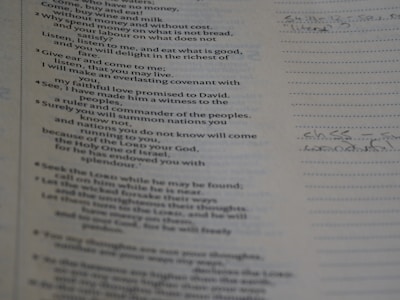 you who have no money,
Come, buy and eat!
Come, buy wine and milk
without money and without cost.
2 Why spend money on what is not bread,
and your labour on what does not
satisfy?
Listen, listen to me, and eat what is good,
and you will delight in the richest of
fare.
3 Give ear and come to me;
listen, that you may live.
I will make an everlasting covenant with
you,
my faithful love promised to David.
4 See, I have made him a witness to the
peoples,
a ruler and commander of the peoples.
5 Surely you will summon nations you
know not,
and nations you do not know will come
running to you,
because of the LORD your God,
the Holy One of Israel,
for he has endowed you with
splendour.'
6 Seek the LORD while he may be found;
call on him while he is near.
7 Let the wicked forsake their ways
and the unrighteous their thoughts.
Let them turn to the LORD, and he will
have mercy on them,
and to our God, for he will freely
pardon.
8 'For my thoughts are not your thoughts,
neither are your ways my ways,'
declares the LORD.